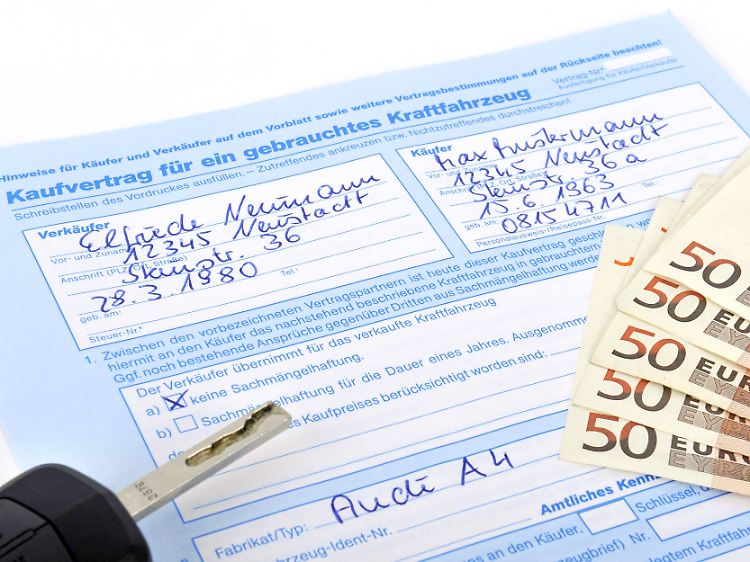 Hinweise für Käufer und Verkäufer auf dem Vorblatt sowie weitere Vertragsbestimmungen auf der Rückseite beachten!
Vertrag-Nr*
Ausfertigung für Käufer/Verkäufer
Kaufvertrag für ein gebrauchtes Kraftfahrzeug
Schreibstellen des Vordruckes ausfüllen. – Zutreffendes ankreuzen bzw. Nichtzutreffendes durchstreichen!
Verkäufer
Elfriede Neumann
Vor- und Zuname
12345 Neustadt
Anschrift (PLZ, Ort, Straße)
Steinstr. 36
28.3.1980
geb. am:
Tel.:
Steuer-Nr*
Käufer
Max Mustermann
Vor- und Zuname
12345 Neustadt
Steinstr. 36a
15.6.1963
08154711
Personalausweis-/Reisepass-Nr.
1. Zwischen den vorbezeichneten Vertragspartnern ist heute dieser Kaufvertrag geschlossen
hiermit an den Käufer das nachstehend beschriebene Kraftfahrzeug in gebrauchtem
Ggf. noch bestehende Ansprüche gegenüber Dritten aus Sachmängelhaftung werden
Der Verkäufer übernimmt für das verkaufte Kraftfahrzeug
a) X keine Sachmängelhaftung.
b) Sachmängelhaftung für die Dauer eines Jahres. Ausgenommen
des Kaufpreises berücksichtigt worden sind:
Audi A4
Fabrikat/Typ:
Amtliches Kenn
Fahrzeug-Ident-Nr.
Schlüssel,
es an den Käufer,
zeugbrief) Nr.
legtem Kraftfah
50
50 EURO
50 EURO
50 EURO
50 EURO